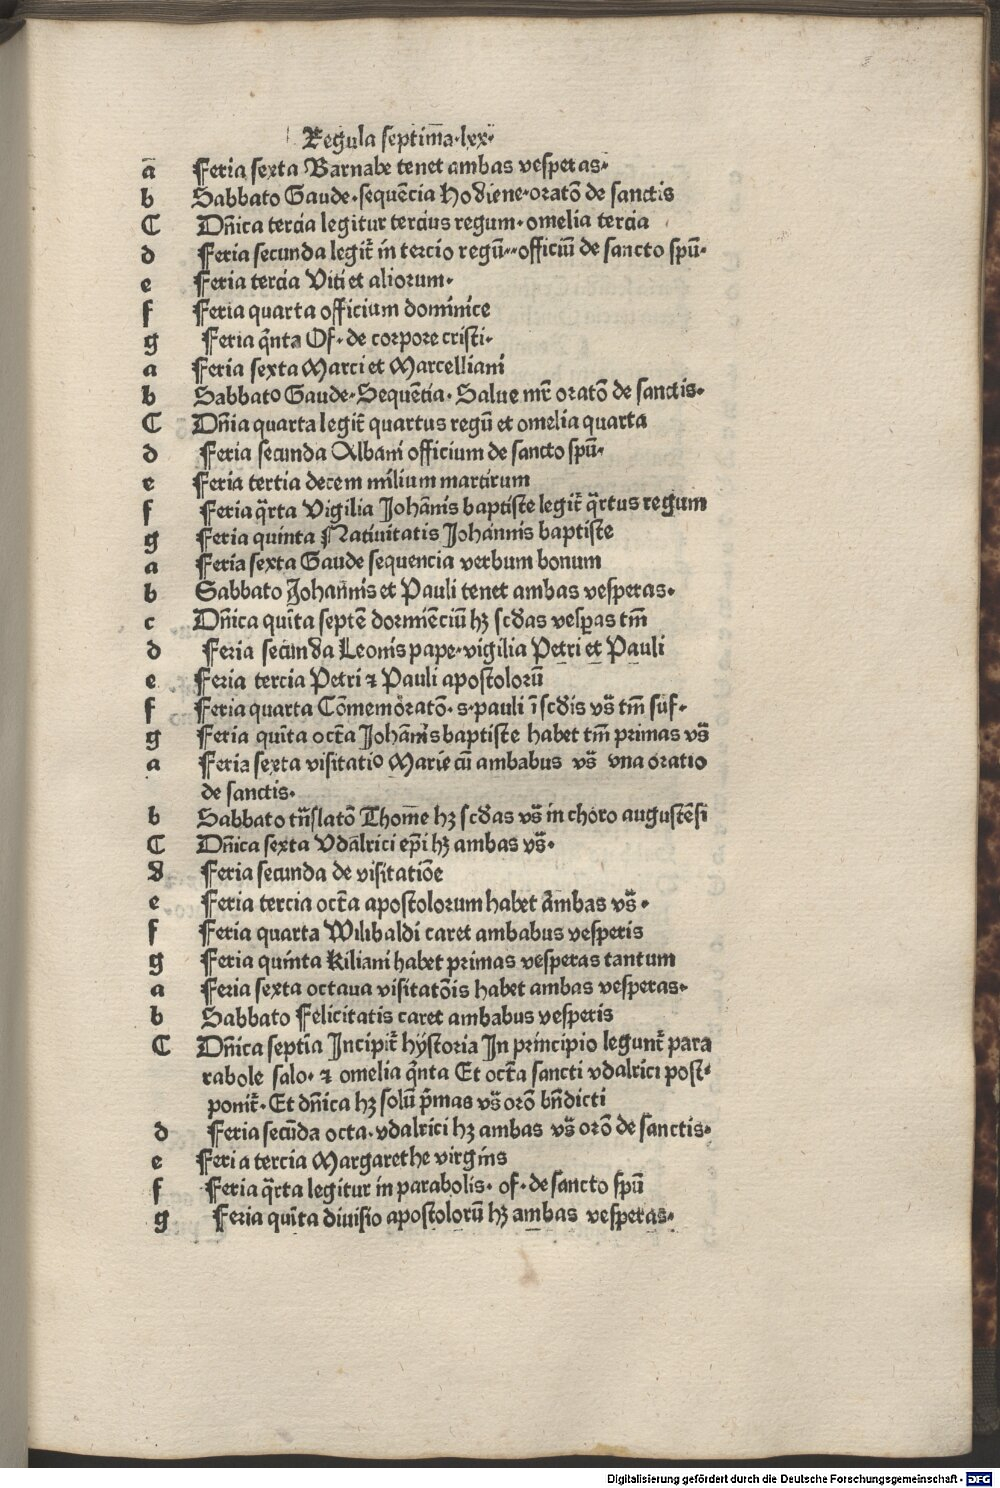 Regula septim̄a·lxx·
a Feria sexta Barnabe tenet ambas vesperas·
b Sabbato Gaude·sequēcia Hodiene·oratō de sanctis
C Dn̄ica tercia legitur tercius regum·omelia tercia
d Feria secunda legit᷑ in tercio regū··officiū de sancto spū·
e Feria tercia Viti et aliorum·
f Feria quarta officium dominice
g Feria q̄nta Of·de corpore cristi·
a Feria sexta Marci et Marcelliani
b Sabbato Gaude·Sequētia·Salue mr̄ oratō de sanctis·
C Dn̄ia quarta legit᷑ quartus regū et omelia quarta
d Feria secunda Albani officium de sancto spū·
e Feria tertia decem milium martirum
f Feria q̄rta Vigilia Johānis baptiste legit᷑ q̄rtus regum
g Feria quinta Natiuitatis Johānnis baptiste
a Feria sexta Gaude sequencia verbum bonum
b Sabbato Johannis et Pauli tenet ambas vesperas·
c Dn̄ica quīta septē dormiēciū hꝫ scdas vesꝑas tm̄
d Feria secunda Leonis pape·vigilia Petri et Pauli
e Feria tercia Petri ⁊ Pauli apostolorū
f Feria quarta Cōmemoratō·s·pauli ī scdis vs̄ tm̄ suf·
g Feria quīta oct̄a Johānis baptiste habet tm̄ primas vs̄
a Feria sexta visitatio Marie cū ambabus vs̄ vna oratio
de sanctis·
b Sabbato trn̄slatō Thome hꝫ scdas vs̄ in choro augustēsi
C Dn̄ica sexta Vdalrici ep̄i hꝫ ambas vs̄·
d Feria secunda de visitatiōe
e Feria tercia oct̄a apostolorum habet ambas vs̄·
f Feria quarta Wilibaldi caret ambabus vesperis
g Feria quinta Kiliani habet primas vesperas tantum
a Feria sexta octaua visitatōis habet ambas vesperas·
b Sabbato Felicitatis caret ambabus vesperis
C Dn̄ica septīa Incipit᷑ hystoria In principio legunt᷑ para
rabole salo·⁊ omelia q̄nta Et oct̄a sancti vdalrici post⸗
ponit᷑·Et dn̄ica hꝫ solū p̄mas vs̄ orō bn̄dicti
d Feria secūda octa·vdalrici hꝫ ambas vs̄ orō de sanctis·
e Feria tercia Margarethe virginis
f Feria q̄rta legitur in parabolis·of·de sancto spū
g Feria quīta diuisio apostolorū hꝫ ambas vesperas·
Digitalisierung gefördert durch die Deutsche Forschungsgemeinschaft - DFG